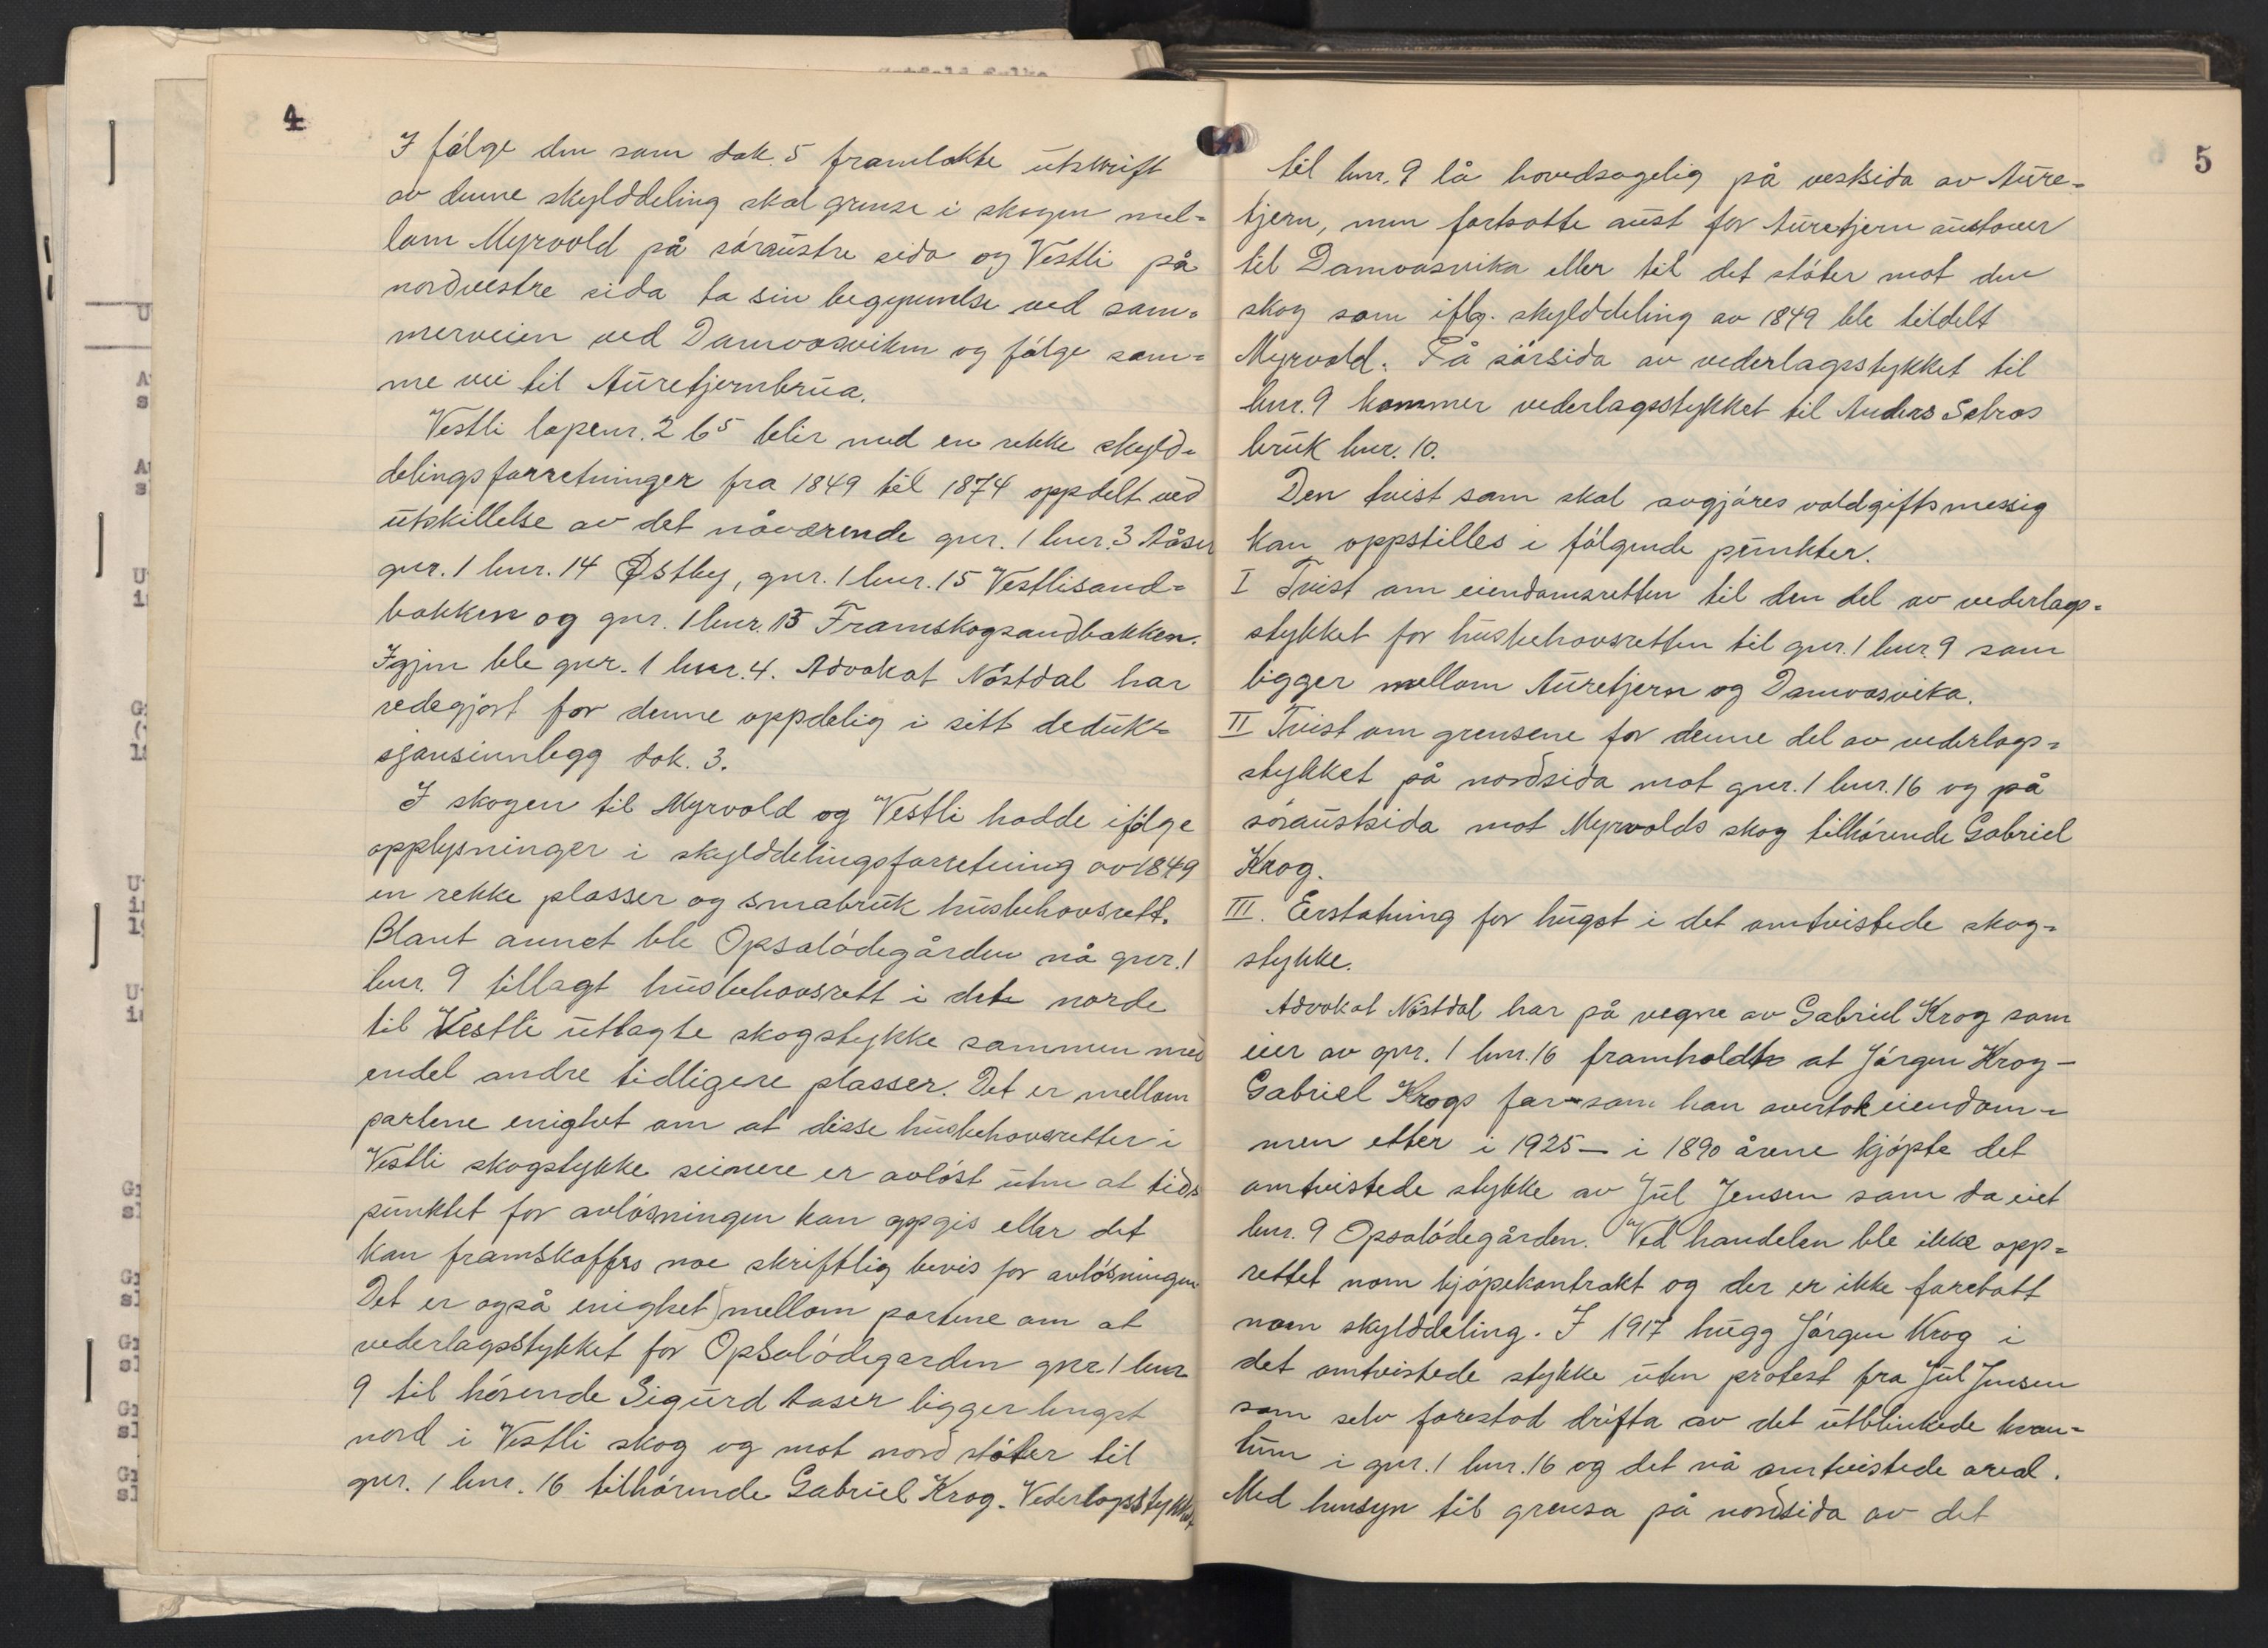 4
I følge den som dok. 5 framlakte utskrift
av denne skylddeling skal grense i skogen mel=
lom Myrvold på søraustre sida og Vestli på
nordvestre sida ta sin begynnelse ved som=
merveien ved Damvasviken og følge sam=
me vei til Auretjernbrua.
Vestli løpenr. 2 b5 blir med en rekke skyld=
delingsforretninger fra 1849 til 1874 oppdelt ved
utskillelse av det nåværende gnr. 1 bnr. 3 Åser
gnr. 1 bnr. 14 Østby, gnr. 1 bnr. 15 Vestlisand=
bakken og gnr. 1 bnr. 13 Framskogsandbakken.
Igjen ble gnr. 1 bnr. 4. Advokat Nøstdal har
redegjort for denne oppdelig i sitt deduk=
sjonsinnlegg dok. 3.
I skogen til Myrvold og Vestli hadde ifølge
opplysninger i skylddelingsforretning av 1849
en rekke plasser og smabruk husbehovsrett.
Blant annet ble Opsalødegården nå gnr. 1
bnr. 9 tillagt husbehovsrett i dete norde
til Vestli utlagte skogstykke sammen med
endel andre tidligere plasser. Det er mellom
partene enighet om at disse husbehovsretter i
Vestli skogstykke seinere er avløst uten at tids
punktet for avløsningen kan oppgis eller det
kan framskaffes noe skriftlig bevis for avløsningen
Det er også enighet mellom partene om at
vederlagsstykket for Opsalødegarden gnr. 1 bnr.
9 til hørende Sigurd Aaser ligger lengst
nord i Vestli skog og mot nord støter til
gnr. 1 bnr. 16 tilhørende Gabriel Krog. Vederlagsstykket
5
til bnr. 9 lå hovedsagelig på vestsida av Aure=
tjern, men fortsatte aust for Auretjern austover
til Damvasvika eller til det støter mot den
skog som iflg. skylddeling av 1849 ble tildelt
Myrvold. På sørsida av vederlagsstykket til
bnr. 9 kommer vederlagsstykket til Anders Sebros
bruk bnr. 10.
Den tvist som skal avgjøres voldgiftsmessig
kan oppstilles i følgende punkter.
I Tvist om eiendomsretten til den del av vederlags=
stykket for husbehovsretten til gnr. 1 bnr. 9 som
ligger mellom Auretjern og Damvasvika.
II Tvist om grensene for denne del av vederlags=
stykket på nordsida mot gnr. 1 bnr. 16 og på
søraustsida mot Myrvolds skog tilhørende Gabriel
Krog.
III. Erstatning for hugst i det omtvistede skog=
stykke.
Advokat Nøstdal har på vegne av Gabriel Krog som
eier av gnr. 1 bnr. 16 framholdt at Jørgen Krog -
Gabriel Krogs far som han overtok eiendom=
men etter i 1925 - i 1890 årene kjøpte det
omtvistede stykke av Jul Jensen som da eiet
bnr. 9 Opsalødegården. Ved handelen ble ikke opp=
rettet noen kjøpekontrakt og der er ikke foretatt
noen skylddeling. I 1917 hugg Jørgen Krog i
det omtvistede stykke uten protest fra Jul Jensen
som selv forestod drifta av det utblinkede kvan=
tum i gnr. 1 bnr. 16 og det nå omtvistede areal.
Med hensyn til grensa på nordsida av det